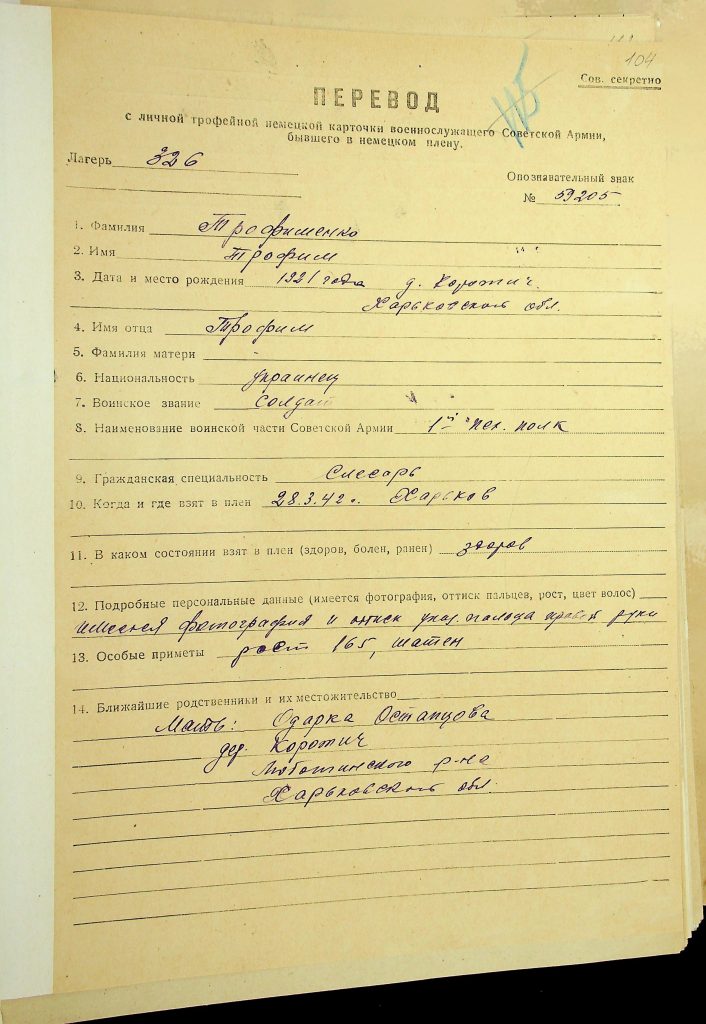 104
Сов. секретно
ПЕРЕВОД
с личной трофейной немецкой карточки военнослужащего Советской Армии,
бывшего в немецком плену.
Лагерь 326
Опознавательный знак
№ 59205
1. Фамилия Трофименко
2. Имя Трофим
3. Дата и место рождения 1921 года д. Коротич.
Харьковской обл.
4. Имя отца Трофим
5. Фамилия матери -
6. Национальность украинец
7. Воинское звание Солдат
8. Наименование воинской части Советской Армии 1й пех. полк
9. Гражданская специальность Слесарь
10. Когда и где взят в плен 28.3.42 г. Харьков
11. В каком состоянии взят в плен (здоров, болен, ранен) здоров
12. Подробные персональные данные (имеется фотография, оттиск пальцев, рост, цвет волос)
имеется фотография и оттиск указ. пальца правой руки
13. Особые приметы рост 165, шатен
14. Ближайшие родственники и их местожительство
Мать: Одарка Остапцова
дер. Коротич
Люботинского р-на
Харьковской обл.